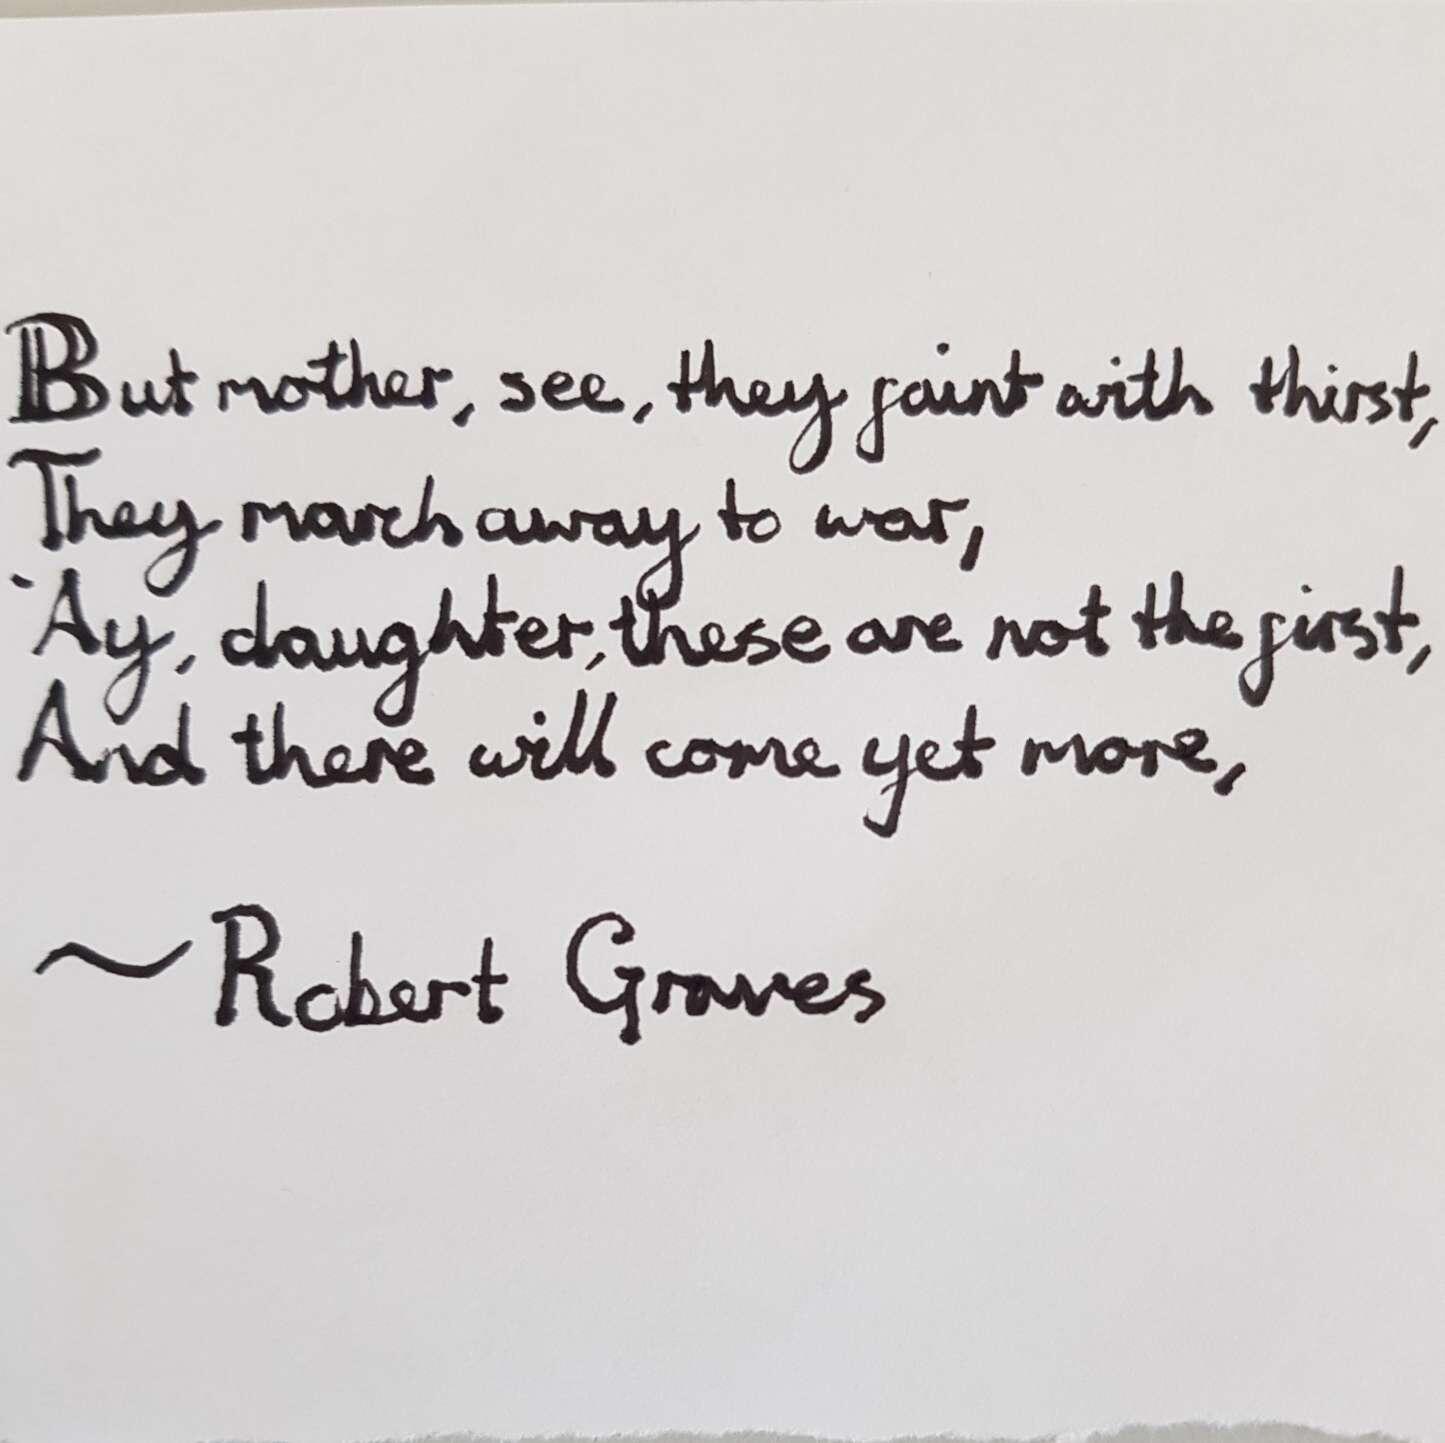 But mother, see, they faint with thirst,
They march away to war,
'Ay, daughter, these are not the first,
And there will come yet more,
~Robert Graves